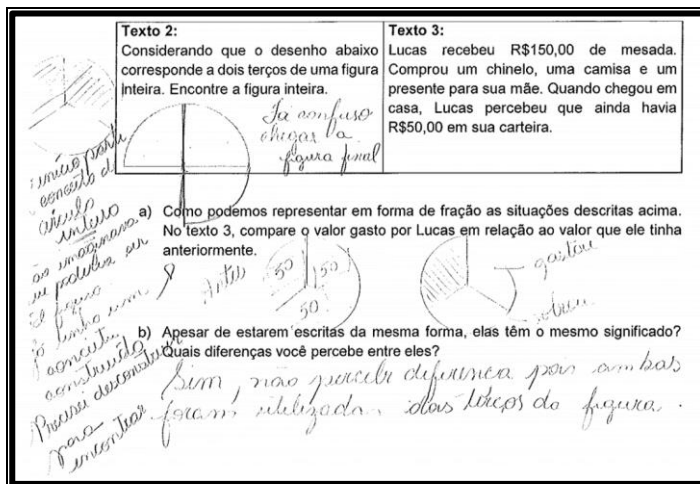 Texto 2:
Considerando que o desenho abaixo
corresponde a dois terços de uma figura
inteira. Encontre a figura inteira.
Tá confuso
chegar a
figura final
Texto 3:
Lucas recebeu R$150,00 de mesada.
Comprou um chinelo, uma camisa e um
presente para sua mãe. Quando chegou em
casa, Lucas percebeu que ainda havia
R$50,00 em sua carteira.
início parti
conceito d
círculo
inteiro
ao imaginava
poderia ser
figura
já tinha um
conceito
construído
Precisei desconstruir
para
encontrar
a) Como podemos representar em forma de fração as situações descritas acima.
No texto 3, compare o valor gasto por Lucas em relação ao valor que ele tinha
anteriormente.
Antes
50 50
50
gastou
sobrou
b) Apesar de estarem escritas da mesma forma, elas têm o mesmo significado?
Quais diferenças você percebe entre eles?
Sim, não percebi diferença pois ambas
foram utilizada dois terços da figura.